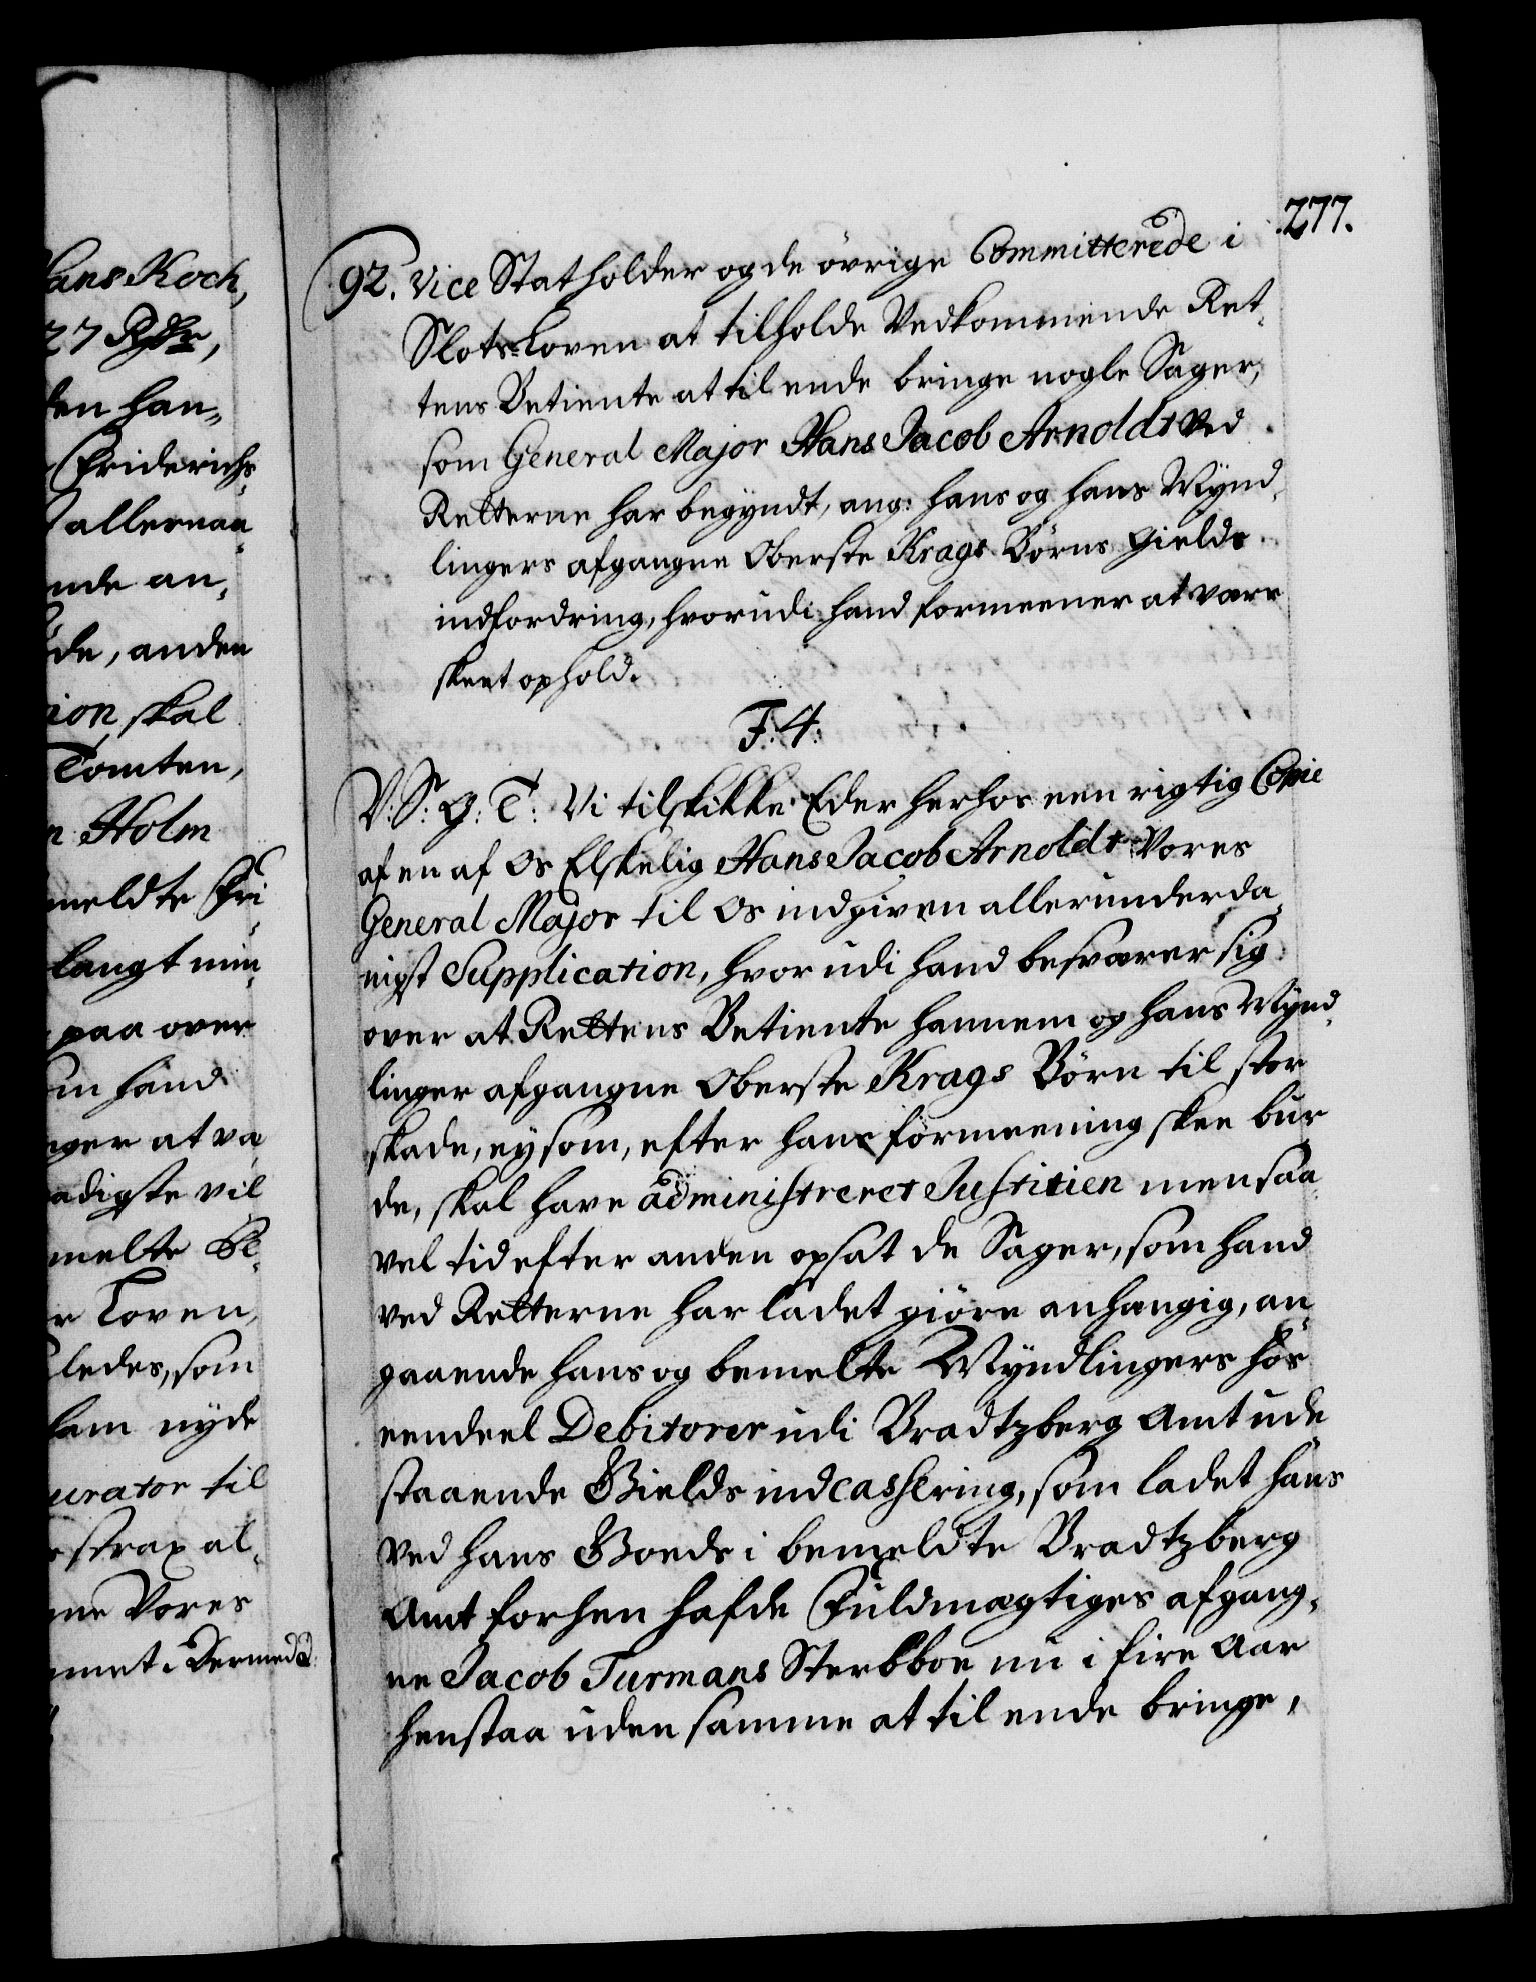 ans Koch,
27 Rdr,
en han-
Friderichs
allernaa
nde an-
de, anden
ion, skal
Tomten,
n Holm
meldte Fri
langt min
paa over
m hand
nger at va
adigste vil
melte Be-
r Loven,
ledes, som
lam nyde
urator til
strax al-
ne Vores
met. Dermed
277.
92. Vice Statholder og de övrige Committerede i
Slots-Loven at tilholde Vedkommende Ret-
tens Betiente at til ende bringe nogle Sager,
som General Major Hans Jacob Arnoldt ved
Retterne har begyndt, ang: hans og hans Mynd-
lingers afgangne Oberste Krags Börns Gields
indfordring, hvorudi hand formeener at være
skeet ophold.
F: 4:
V: S: G: T: Vi tilskikke Eder herhos een rigtig Copie
af en af Os Elskelig Hans Jacob Arnoldt Vores
General Major til Os indgiven allerunderda-
nigst Supplication, hvorudi hand besværer sig
over at Rettens Betiente hannem og hans Mynd-
linger afgangne Oberste Krags Börn til stor
skade, ey som, efter hans formeening skee bur-
de, skal have administreret Justitien men saa
vel tid efter anden opsat de Sager, som hand
ved Retterne har ladet giöre anhængig, an-
gaaende hans og bemelte Myndlingers hos
eendeel Debitorer udi Bradtzberg Amt ude
staaende Gields indcassering, som ladet hans
ved hans Goeds i bemeldte Bradtzberg
Amt forhen hafde Fuldmægtiges afgang-
ne Jacob Turmans Sterbboe nu i fire Aar
henstaa uden samme at til ende bringe,